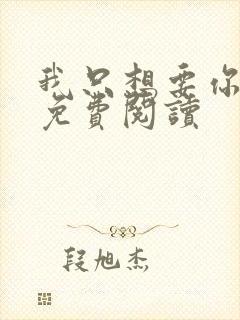 我只想要你
免費閱讀
段旭杰